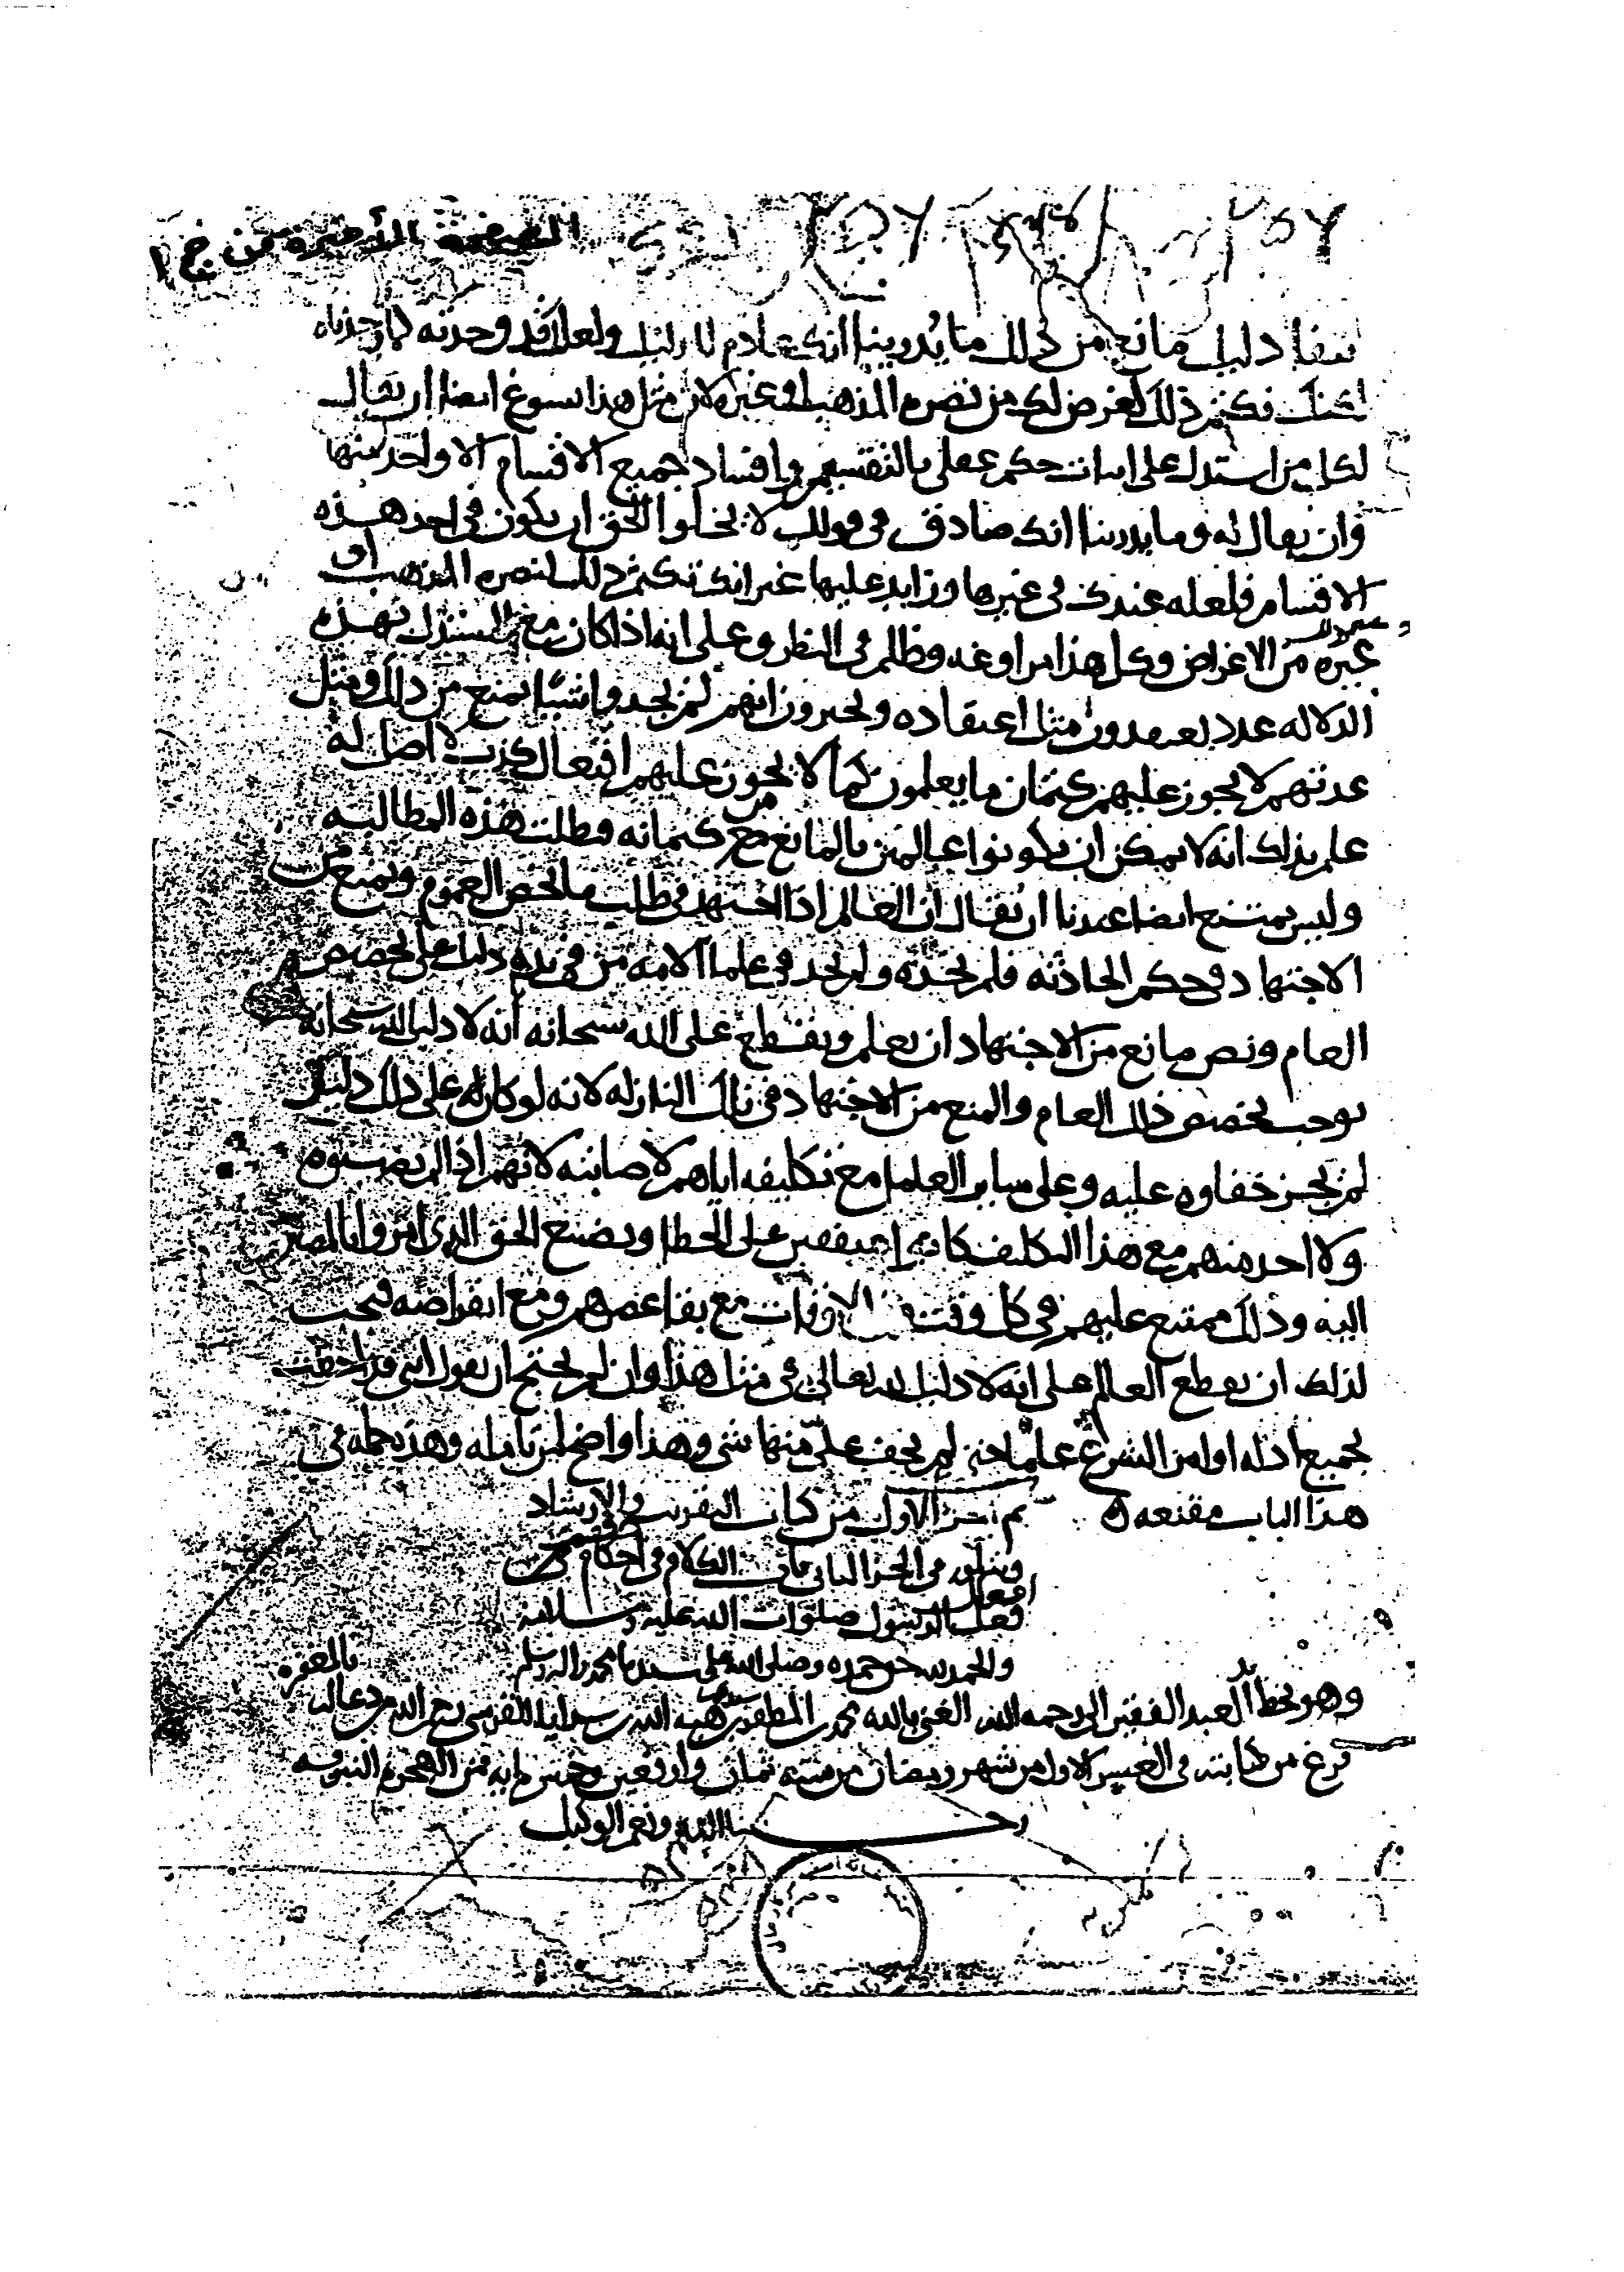 الصفحة الأخيرة من ج ١
دليل مانع من ذلك ما يدرينا انك عادم للدليل ولعلك قد وجدته كما وجدناه
لكنك تكتم ذلك لغرض لك من نصرة المذهب او غيره لان مثل هذا يسوغ ايضا ان يقال
لكل من استدل على اثبات حكم عقلي بالتقسيم وافساد جميع الاقسام الا واحد منها
وان يقال له وما يدرينا انك صادق في قولك لا يخلوا الحق ان يكون في احد هذه
الاقسام فلعله عندك في غيرها وزايد عليها غير انك تكتم ذلك لنصرة المذهب او
غيره من الاغراض وكل هذا مراوغه وظلم في النظر وعلى انه اذا كان مع المستدل بهذه
الدلاله عدد يعتقدون مثل اعتقاده ويخبرون انهم لم يجدوا شيئا يمنع من ذلك ومثل
عدتهم لا يجوز عليهم كتمان ما يعلمون كما لا يجوز عليهم افتعال كذب لا اصل له
علم بذلك انه لا يمكن ان يكونوا عالمين بالمانع مع كتمانه وبطلت هذه المطالبه
وليس يمتنع ايضا عندنا ان يقال ان العالم اذا اجتهد في طلب ما يخص العموم ويمنع من
الاجتهاد في حكم الحادثه فلم يجده ولم يجد في علما الامه من في يده دليل على تخصيص
العام ونص مانع من الاجتهاد ان يعلم ويقطع على الله سبحانه انه لا دليل لله سبحانه
يوجب تخصيص ذلك العام والمنع من الاجتهاد في تلك النازله لانه لو كان له على ذلك دليل
لم يجز خفاوه عليه وعلى ساير العلما مع تكليفه اياهم لاصابته لانهم اذا لم يصيبوه
ولا احد منهم مع هذا التكليف كانوا متفقين على الخطا وبضيع الحق الذي امروا بالمصير
اليه وذلك ممتنع عليهم في كل وقت من الاوقات مع بقا عصرهم ومع انقراضه فيجب
لذلك ان يقطع العالم على انه لا دليل لله تعالى في مثل هذا وان لم يحتج ان يقول انني قد احطت
بجميع ادله اوله من الشرع علما حتى لم يخف علي منها شي وهذا واضح لمن تامله وهذه جمله في
هذا الباب مقنعه
تم الجزء الاول من كتاب التقريب والارشاد
ويتلوه في الجزء الثاني باب الكلام في احكام
افعال
الرسول صلوات الله عليه وسلامه
والحمد لله حق حمده وصلى الله على سيدنا محمد واله وسلم
وهو بخط العبد الفقير الى رحمه الله الغني بالله محمد بن المظفر بن هبه الله بن سرايا المقدسي رحم الله من دعا له
بالمغفره
فرغ من كتابته في العشر الاول من شهر رمضان من سنه ثمان واربعين وخمس مايه من الهجره النبويه
حسبنا الله ونعم الوكيل